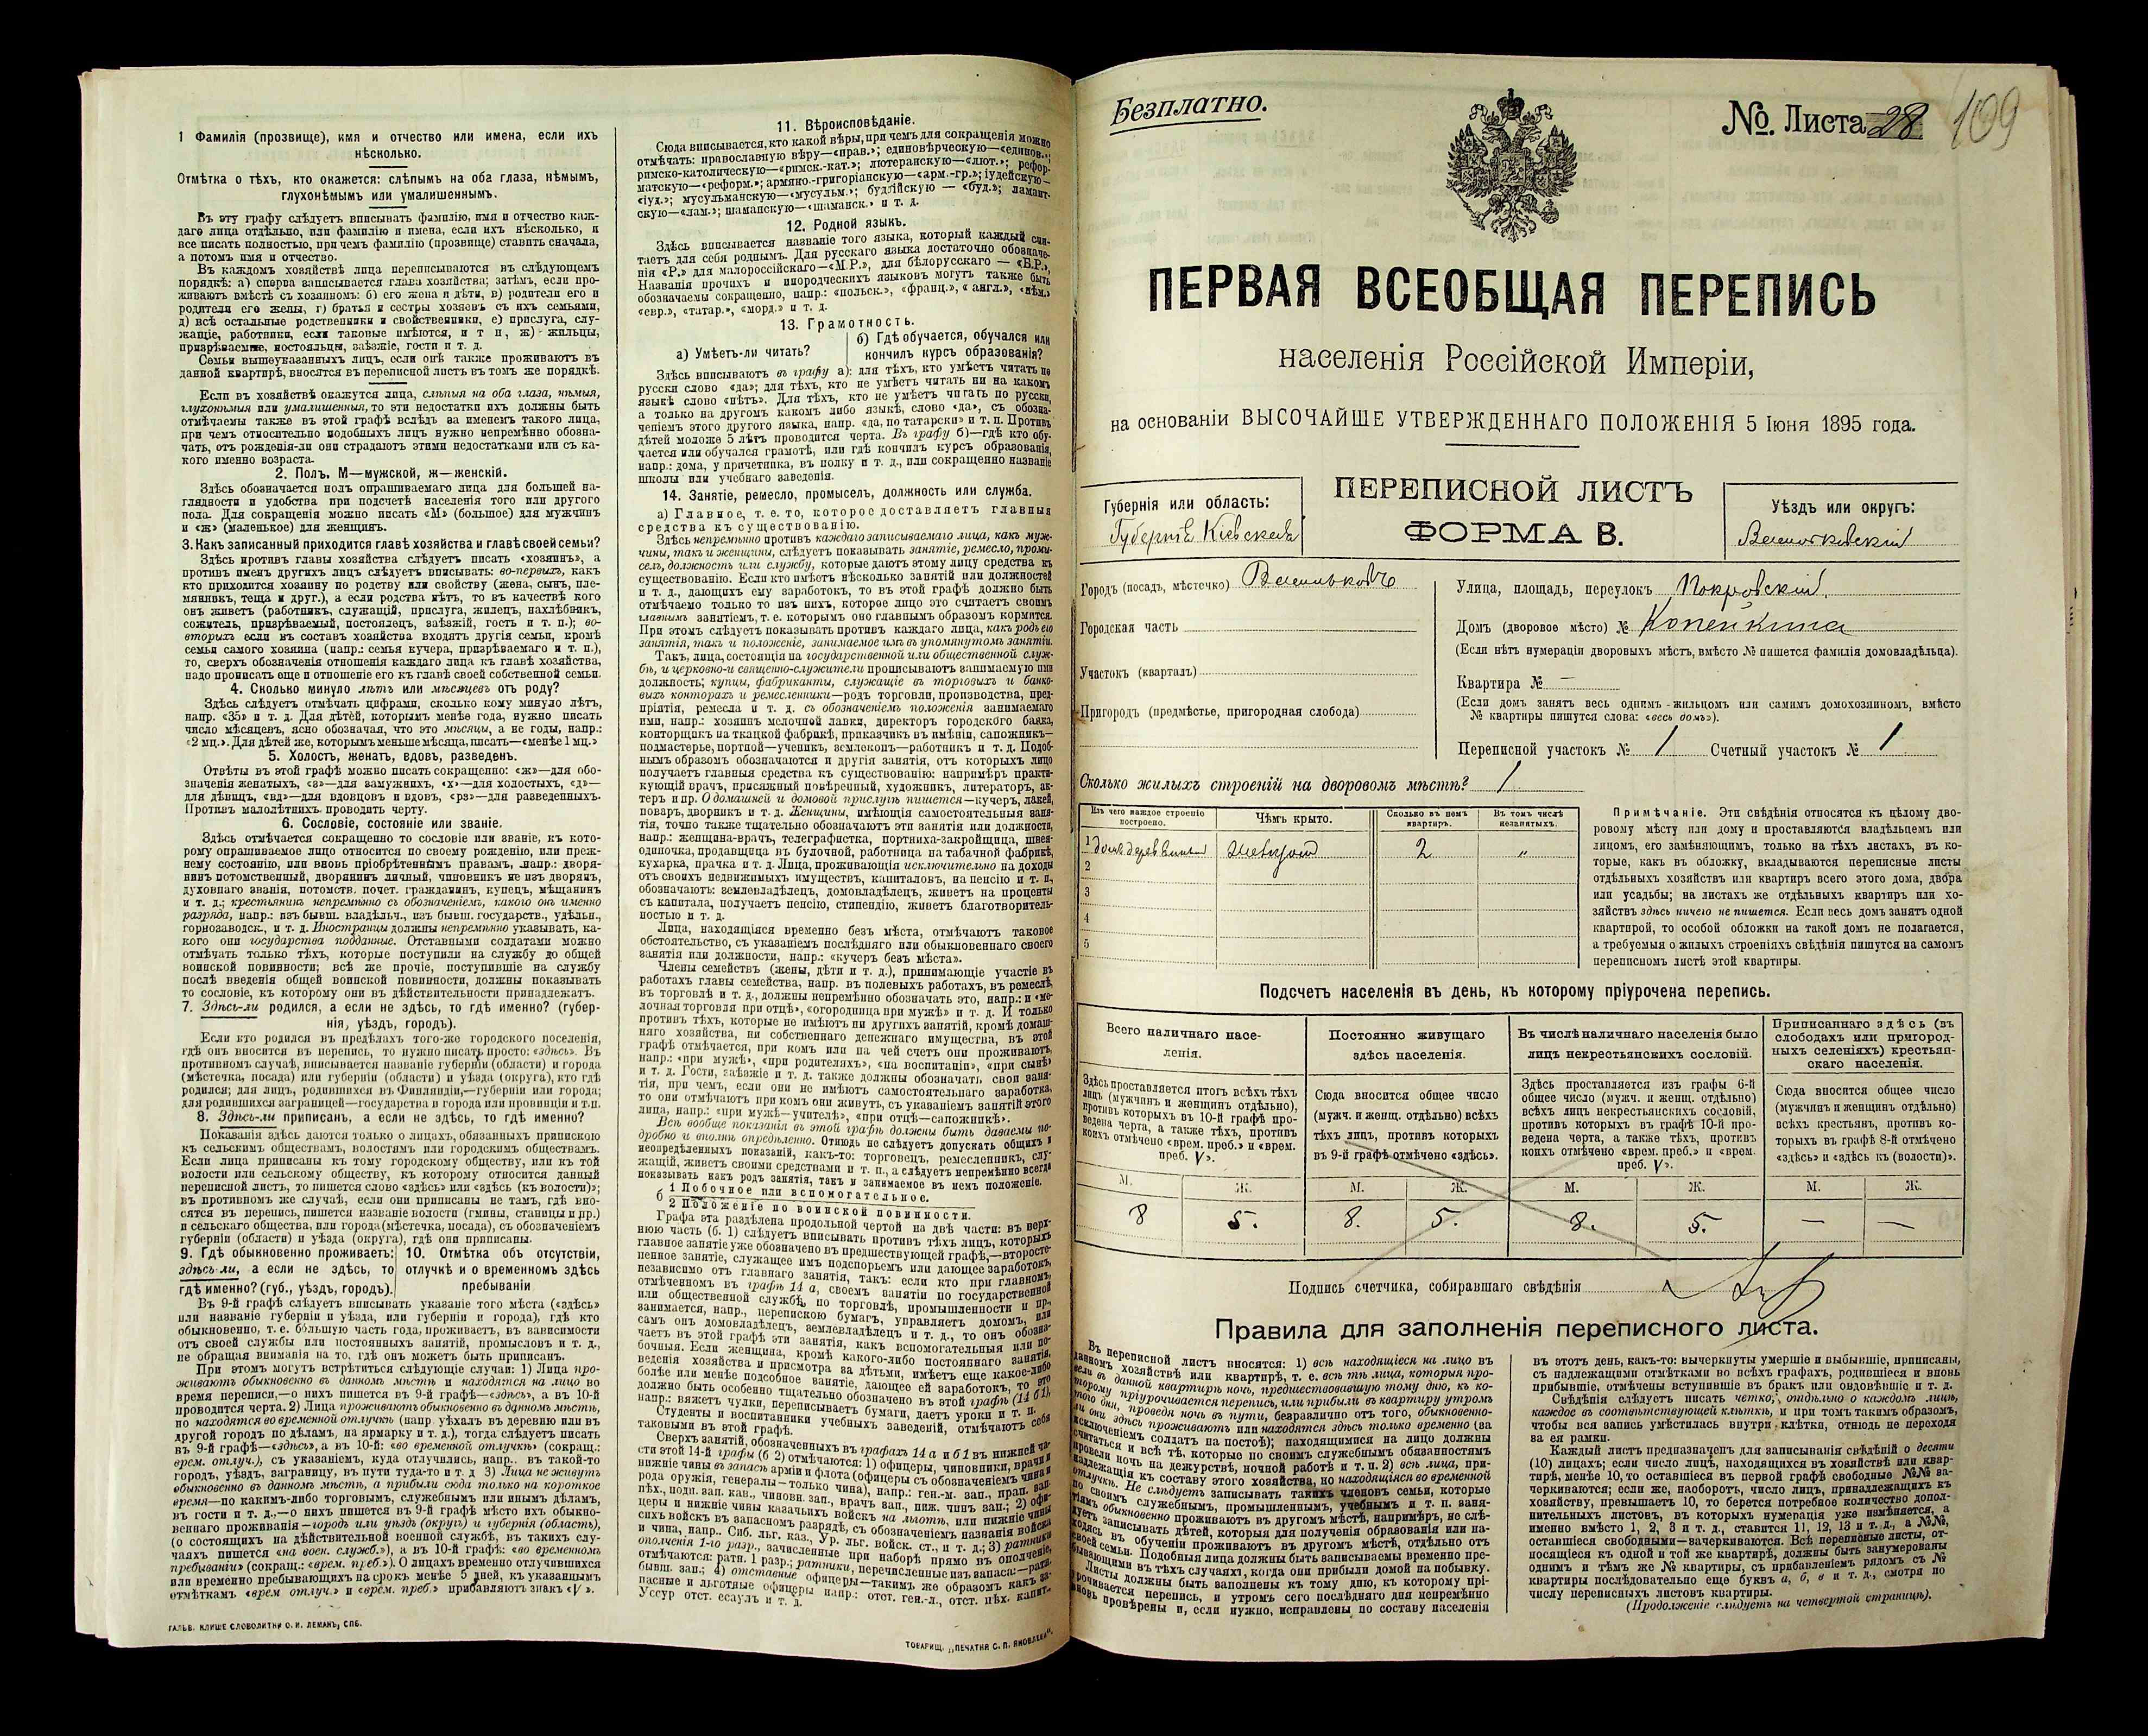 1 Фамилія (прозвище), имя и отчество или имена, если ихъ
нѣсколько.
Отмѣтка о тѣхъ, кто окажется: слѣпымъ на оба глаза, нѣмымъ,
глухонѣмымъ или умалишеннымъ.
Въ эту графу слѣдуетъ вписывать фамилію, имя и отчество каж-
даго лица отдѣльно, или фамилію и имена, если ихъ нѣсколько, и
все писать полностью, при чемъ фамилію (прозвище) ставить сначала,
а потомъ имя и отчество.
Въ каждомъ хозяйствѣ лица переписываются въ слѣдующемъ
порядкѣ: а) сперва записывается глава хозяйства; затѣмъ, если про-
живаютъ вмѣстѣ съ хозяиномъ: б) его жена и дѣти, в) родители его и
родители его жены, г) братья и сестры хозяевъ съ ихъ семьями,
д) всѣ остальные родственники и свойственники, е) прислуга, слу-
жащіе, работники, если таковые имѣются, и т п, ж) жильцы,
призрѣваемые, постояльцы, заѣзжіе, гости и т. д.
Семьи вышеуказанныхъ лицъ, если онѣ также проживаютъ въ
данной квартирѣ, вносятся въ переписной листъ въ томъ же порядкѣ.
Если въ хозяйствѣ окажутся лица, слѣпыя на оба глаза, нѣмыя,
глухонѣмыя или умалишенныя, то эти недостатки ихъ должны быть
отмѣчаемы также въ этой графѣ вслѣдъ за именемъ такого лица,
при чемъ относительно подобныхъ лицъ нужно непремѣнно обозна-
чать, отъ рожденія-ли они страдаютъ этими недостатками или съ ка-
кого именно возраста.
2. Полъ. М—мужской, ж—женскій.
Здѣсь обозначается полъ опрашиваемаго лица для большей на-
глядности и удобства при подсчетѣ населенія того или другого
пола. Для сокращенія можно писать «М» (большое) для мужчинъ
и «ж» (маленькое) для женщинъ.
3. Какъ записанный приходится главѣ хозяйства и главѣ своей семьи?
Здѣсь противъ главы хозяйства слѣдуетъ писать «хозяинъ», а
противъ именъ другихъ лицъ слѣдуетъ вписывать: во-первыхъ, какъ
кто приходится хозяину по родству или свойству (жена, сынъ, пле-
мянникъ, теща и друг.), а если родства нѣтъ, то въ качествѣ кого
онъ живетъ (работникъ, служащій, прислуга, жилецъ, нахлѣбникъ,
сожитель, призрѣваемый, постоялецъ, заѣзжій, гость и т. п.); во-
вторыхъ если въ составъ хозяйства входятъ другія семьи, кромѣ
семьи самого хозяина (напр.: семья кучера, призрѣваемаго и т. п.),
то, сверхъ обозначенія отношенія каждаго лица къ главѣ хозяйства,
надо прописать еще и отношеніе его къ главѣ своей собственной семьи.
4. Сколько минуло лѣтъ или мѣсяцевъ отъ роду?
Здѣсь слѣдуетъ отмѣчать цифрами, сколько кому минуло лѣтъ,
напр. «35» и т. д. Для дѣтей, которымъ менѣе года, нужно писать
число мѣсяцевъ, ясно обозначая, что это мѣсяцы, а не годы, напр.:
«2 мц.». Для дѣтей же, которымъ меньше мѣсяца, писать—«менѣе 1 мц.»
5. Холостъ, женатъ, вдовъ, разведенъ.
Отвѣты въ этой графѣ можно писать сокращенно: «ж»—для обо-
значенія женатыхъ, «з»—для замужнихъ, «х»—для холостыхъ, «д»—
для дѣвицъ, «вд»—для вдовцовъ и вдовъ, «рз»—для разведенныхъ.
Противъ малолѣтнихъ проводить черту.
6. Сословіе, состояніе или званіе.
Здѣсь отмѣчается сокращенно то сословіе или званіе, къ кото-
рому опрашиваемое лицо относится по своему рожденію, или преж-
нему состоянію, или вновь пріобрѣтеннымъ правамъ, напр.: дворя-
нинъ потомственный, дворянинъ личный, чиновникъ не изъ дворянъ,
духовнаго званія, потомств. почет. гражданинъ, купецъ, мѣщанинъ
и т. д.; крестьянинъ непремѣнно съ обозначеніемъ, какого онъ именно
разряда, напр.: изъ бывш. владѣльч., изъ бывш. государств., удѣльн.,
горнозаводск., и т. д. Иностранцы должны непремѣнно указывать, ка-
кого они государства подданные. Отставными солдатами можно
отмѣчать только тѣхъ, которые поступили на службу до общей
воинской повинности; всѣ же прочіе, поступившіе на службу
послѣ введенія общей воинской повинности, должны показывать
то сословіе, къ которому они въ дѣйствительности принадлежатъ.
7. Здѣсь-ли родился, а если не здѣсь, то гдѣ именно? (губер-
нія, уѣздъ, городъ).
Если кто родился въ предѣлахъ того-же городского поселенія,
гдѣ онъ вносится въ перепись, то нужно писать просто: «здѣсь». Въ
противномъ случаѣ, вписывается названіе губерніи (области) и города
(мѣстечка, посада) или губерніи (области) и уѣзда (округа), кто гдѣ
родился; для лицъ, родившихся въ Финляндіи,—губерніи или города;
для родившихся заграницей—государства и города или провинціи и т.п.
8. Здѣсь-ли приписанъ, а если не здѣсь, то гдѣ именно?
Показанія здѣсь даются только о лицахъ, обязанныхъ припискою
къ сельскимъ обществамъ, волостямъ или городскимъ обществамъ.
Если лица приписаны къ тому городскому обществу, или къ той
волости или сельскому обществу, къ которому относится данный
переписной листъ, то пишется слово «здѣсь» или «здѣсь (къ волости)»;
въ противномъ же случаѣ, если они приписаны не тамъ, гдѣ вно-
сятся въ перепись, пишется названіе волости (гмины, станицы и пр.)
и сельскаго общества, или города (мѣстечка, посада), съ обозначеніемъ
губерніи (области) и уѣзда (округа), гдѣ они приписаны.
9. Гдѣ обыкновенно проживаетъ: здѣсь-ли, а если не здѣсь, то гдѣ именно? (губ., уѣздъ, городъ).
10. Отмѣтка объ отсутствіи, отлучкѣ и о временномъ здѣсь пребываніи
Въ 9-й графѣ слѣдуетъ вписывать указаніе того мѣста («здѣсь»
или названіе губерніи и уѣзда, или губерніи и города), гдѣ кто
обыкновенно, т. е. большую часть года, проживаетъ, въ зависимости
отъ своей службы или постоянныхъ занятій, промысловъ и т. д.,
не обращая вниманія на то, гдѣ онъ можетъ быть приписанъ.
При этомъ могутъ встрѣтиться слѣдующіе случаи: 1) Лица про-
живаютъ обыкновенно въ данномъ мѣстѣ и находятся на лицо во
время переписи,—о нихъ пишется въ 9-й графѣ—«здѣсь», а въ 10-й
проводится черта. 2) Лица проживаютъ обыкновенно въ данномъ мѣстѣ,
но находятся во временной отлучкѣ (напр. уѣхалъ въ деревню или въ
другой городъ по дѣламъ, на ярмарку и т. д.), тогда слѣдуетъ писать
въ 9-й графѣ—«здѣсь», а въ 10-й: «во временной отлучкѣ» (сокращ.:
врем. отлуч.), съ указаніемъ, куда отлучились, напр.. въ такой-то
городъ, уѣздъ, заграницу, въ пути туда-то и т. д 3) Лица не живутъ
обыкновенно въ данномъ мѣстѣ, а прибыли сюда только на короткое
время—по какимъ-либо торговымъ, служебнымъ или инымъ дѣламъ,
въ гости и т. д.,—о нихъ пишется въ 9-й графѣ мѣсто ихъ обыкно-
веннаго проживанія—городъ или уѣздъ (округъ) и губернія (область),
(о состоящихъ на дѣйствительной военной службѣ, въ такихъ слу-
чаяхъ пишется «на воен. служб.»), а въ 10-й графѣ: «во временномъ
пребываніи» (сокращ.: «врем. преб.»). О лицахъ временно отлучившихся
или временно пребывающихъ на срокъ менѣе 5 дней, къ указаннымъ
отмѣткамъ «врем отлуч.» и «врем. преб.» прибавляютъ знакъ «V».
ГАЛЬВ. КЛИШЕ СЛОВОЛИТНИ О. И. ЛЕМАНЪ, СПБ.
11. Вѣроисповѣданіе.
Сюда вписывается, кто какой вѣры, при чемъ для сокращенія можно
отмѣчать: православную вѣру—«прав.»; единовѣрческую—«единов.»;
римско-католическую—«римск.-кат.»; лютеранскую—«лют.»; рефор-
матскую—«реформ.»; армяно-григоріанскую—«арм.-гр.»; іудейскую—
«іуд.»; мусульманскую—«мусульм.»; буддійскую — «буд.»; ламаит-
скую—«лам.»; шаманскую—«шаманск.» и т. д.
12. Родной языкъ.
Здѣсь вписывается названіе того языка, который каждый счи-
таетъ для себя роднымъ. Для русскаго языка достаточно обозначе-
нія «Р.» для малороссійскаго—«М.Р.», для бѣлорусскаго — «Б.Р.»,
Названія прочихъ и инородческихъ языковъ могутъ также быть
обозначаемы сокращенно, напр.: «польск.», «франц.», «англ.», «нѣм.»
«евр.», «татар.», «морд.» и т. д.
13. Грамотность.
а) Умѣетъ-ли читать?
б) Гдѣ обучается, обучался или кончилъ курсъ образованія?
Здѣсь вписываютъ въ графу а): для тѣхъ, кто умѣетъ читать по
русски слово «да»; для тѣхъ, кто не умѣетъ читать ни на какомъ
языкѣ слово «нѣтъ». Для тѣхъ, кто не умѣетъ читать по русски,
а только на другомъ какомъ либо языкѣ, слово «да», съ обозна-
ченіемъ этого другого языка, напр. «да, по татарски» и т. п. Противъ
дѣтей моложе 5 лѣтъ проводится черта. Въ графу б)—гдѣ кто обу-
чается или обучался грамотѣ, или гдѣ кончилъ курсъ образованія,
напр.: дома, у причетника, въ полку и т. д., или сокращенно названіе
школы или учебнаго заведенія.
14. Занятіе, ремесло, промыселъ, должность или служба.
а) Главное, т. е. то, которое доставляетъ главныя
средства къ существованію.
Здѣсь непремѣнно противъ каждаго записываемаго лица, какъ муж-
чины, такъ и женщины, слѣдуетъ показывать занятіе, ремесло, промы-
селъ, должность или службу, которые даютъ этому лицу средства къ
существованію. Если кто имѣетъ нѣсколько занятій или должностей
и т. д., дающихъ ему заработокъ, то въ этой графѣ должно быть
отмѣчаемо только то изъ нихъ, которое лицо это считаетъ своимъ
главнымъ занятіемъ, т. е. которымъ оно главнымъ образомъ кормится.
При этомъ слѣдуетъ показывать противъ каждаго лица, какъ родъ его
занятія, такъ и положеніе, занимаемое имъ въ упомянутомъ занятіи.
Такъ, лица, состоящія на государственной или общественной служ-
бѣ, и церковно-и священно-служители прописываютъ занимаемую ими
должность; купцы, фабриканты, служащіе въ торговыхъ и банко-
выхъ конторахъ и ремесленники—родъ торговли, производства, пред-
пріятія, ремесла и т. д. съ обозначеніемъ положенія занимаемаго
ими, напр.: хозяинъ мелочной лавки, директоръ городского банка,
конторщикъ на ткацкой фабрикѣ, приказчикъ въ имѣніи, сапожникъ—
подмастерье, портной—ученикъ, землекопъ—работникъ и т. д. Подоб-
нымъ образомъ обозначаются и другія занятія, отъ которыхъ лицо
получаетъ главныя средства къ существованію: напримѣръ практи-
кующій врачъ, присяжный повѣренный, художникъ, литераторъ, ак-
теръ и пр. О домашней и домовой прислугѣ пишется—кучеръ, лакей,
поваръ, дворникъ и т. д. Женщины, имѣющія самостоятельныя заня-
тія, точно также тщательно обозначаютъ эти занятія или должности,
напр.: женщина-врачъ, телеграфистка, портниха-закройщица, швея-
одиночка, продавщица въ булочной, работница на табачной фабрикѣ,
кухарка, прачка и т. д. Лица, проживающія исключительно на доходы
отъ своихъ недвижимыхъ имуществъ, капиталовъ, на пенсію и т. п.,
обозначаютъ: землевладѣлецъ, домовладѣлецъ, живетъ на проценты
съ капитала, получаетъ пенсію, стипендію, живетъ благотворитель-
ностью и т. д.
Лица, находящіяся временно безъ мѣста, отмѣчаютъ таковое
обстоятельство, съ указаніемъ послѣдняго или обыкновеннаго своего
занятія или должности, напр.: «кучеръ безъ мѣста».
Члены семействъ (жены, дѣти и т. д.), принимающіе участіе въ
работахъ главы семейства, напр. въ полевыхъ работахъ, въ ремеслѣ,
въ торговлѣ и т. д., должны непремѣнно обозначать это, напр.: и «ме-
лочная торговля при отцѣ», «огородница при мужѣ» и т. д. И только
противъ тѣхъ, которые не имѣютъ ни другихъ занятій, кромѣ домаш-
няго хозяйства, ни собственнаго денежнаго имущества, въ этой
графѣ отмѣчается, при комъ или на чей счетъ они проживаютъ,
напр.: «при мужѣ», «при родителяхъ», «на воспитаніи», «при сынѣ»
и т. д. Гости, заѣзжіе и т. д. также должны обозначать свои заня-
тія, при чемъ, если они не имѣютъ самостоятельнаго заработка,
то они отмѣчаютъ при комъ они живутъ, съ указаніемъ занятій этого
лица, напр.: «при мужѣ—учителѣ», «при отцѣ—сапожникѣ».
Всѣ вообще показанія въ этой графѣ должны быть даваемы по-
дробно и вполнѣ опредѣленно. Отнюдь не слѣдуетъ допускать общихъ и
неопредѣленныхъ показаній, какъ-то: торговецъ, ремесленникъ, слу-
жащій, живетъ своими средствами и т. п., а слѣдуетъ непремѣнно всегда
показывать какъ родъ занятія, такъ и занимаемое въ немъ положеніе.
б 1 Побочное или вспомогательное.
2 Положеніе по воинской повинности.
Графа эта раздѣлена продольной чертой на двѣ части: въ верх-
нюю часть (б. 1) слѣдуетъ вписывать противъ тѣхъ лицъ, которыхъ
главное занятіе уже обозначено въ предшествующей графѣ,—второсте-
пенное занятіе, служащее имъ подспорьемъ или дающее заработокъ,
независимо отъ главнаго занятія, такъ: если кто при главномъ,
отмѣченномъ въ графѣ 14 а, своемъ занятіи по государственной
или общественной службѣ, по торговлѣ, промышленности и пр.,
занимается, напр., перепискою бумагъ, управляетъ домомъ, или
самъ онъ домовладѣлецъ, землевладѣлецъ и т. д., то онъ обозна-
чаетъ въ этой графѣ эти занятія, какъ вспомогательныя или по-
бочныя. Если женщина, кромѣ какого-либо постояннаго занятія,
веденія хозяйства и присмотра за дѣтьми, имѣетъ еще какое-либо
болѣе или менѣе подсобное занятіе, дающее ей заработокъ, то это
должно быть особенно тщательно обозначено въ этой графѣ (14 б1),
напр.: вяжетъ чулки, переписываетъ бумаги, даетъ уроки и т. п.
Студенты и воспитанники учебныхъ заведеній, отмѣчаютъ себя
таковыми въ этой графѣ.
Сверхъ занятій, обозначенныхъ въ графахъ 14 а и б1 въ нижней ча-
сти этой 14-й графы (б 2) отмѣчаются: 1) офицеры, чиновники, врачи и
нижніе чины въ запасѣ арміи и флота (офицеры съ обозначеніемъ чина и
рода оружія, генералы—только чина), напр.: ген-м. зап., прап. зап.
пѣх., подп. зап. кав., чиновн. зап., врачъ зап., ниж. чинъ зап.; 2) офи-
церы и нижніе чины казачьихъ войскъ на льготѣ, или нижніе чины
сихъ войскъ въ запасномъ разрядѣ, съ обозначеніемъ названія войска
и чина, напр.. Сиб. льг. каз., Ур. льг. войск. ст., и т. д.; 3) ратники
ополченія 1-го разр., зачисленные при наборѣ прямо въ ополченіе,
отмѣчаются: ратн. 1 разр.; ратники, перечисленные изъ запаса:—ратн.
бывш. зап.; 4) отставные офицеры—такимъ же образомъ какъ за-
пасные и льготные офицеры напр.: отст. ген.-л., отст. пѣх. капит.,
Уссур отст. есаулъ и т. д.
ТОВАРИЩ. „ПЕЧАТНЯ С. П. ЯКОВЛЕВА".
Безплатно.
№. Листа 28
109
ПЕРВАЯ ВСЕОБЩАЯ ПЕРЕПИСЬ
населенія Россійской Имперіи,
на основаніи ВЫСОЧАЙШЕ УТВЕРЖДЕННАГО ПОЛОЖЕНІЯ 5 Іюня 1895 года.
Губернія или область:
Губернія Кіевская
ПЕРЕПИСНОЙ ЛИСТЪ
ФОРМА В.
Уѣздъ или округъ:
Васильковскій
Городъ (посадъ, мѣстечко) Васильковъ
Городская часть
Участокъ (кварталъ)
Пригородъ (предмѣстье, пригородная слобода)
Улица, площадь, переулокъ Покровскій
Домъ (дворовое мѣсто) № Копейкина
(Если нѣтъ нумераціи дворовыхъ мѣстъ, вмѣсто № пишется фамилія домовладѣльца).
Квартира № —
(Если домъ занятъ весь однимъ жильцомъ или самимъ домохозяиномъ, вмѣсто
№ квартиры пишутся слова: «весь домъ»).
Переписной участокъ № 1 Счетный участокъ № 1
Сколько жилыхъ строеній на дворовомъ мѣстѣ? 1
Изъ чего каждое строеніе построено.
Чѣмъ крыто.
Сколько въ немъ квартиръ.
Въ томъ числѣ незанятыхъ.
1 2 „
2
3
4
5
Примѣчаніе. Эти свѣдѣнія относятся къ цѣлому дво-
ровому мѣсту или дому и проставляются владѣльцемъ или
лицомъ, его замѣняющимъ, только на тѣхъ листахъ, въ ко-
торые, какъ въ обложку, вкладываются переписные листы
отдѣльныхъ хозяйствъ или квартиръ всего этого дома, двора
или усадьбы; на листахъ же отдѣльныхъ квартиръ или хо-
зяйствъ здѣсь ничего не пишется. Если весь домъ занятъ одной
квартирой, то особой обложки на такой домъ не полагается,
а требуемыя о жилыхъ строеніяхъ свѣдѣнія пишутся на самомъ
переписномъ листѣ этой квартиры.
Подсчетъ населенія въ день, къ которому пріурочена перепись.
Всего наличнаго насе-
ленія.
Здѣсь проставляется итогъ всѣхъ тѣхъ
лицъ (мужчинъ и женщинъ отдѣльно),
противъ которыхъ въ 10-й графѣ про-
ведена черта, а также тѣхъ, противъ
коихъ отмѣчено «врем. преб.» и «врем.
преб. V».
Постоянно живущаго
здѣсь населенія.
Сюда вносится общее число
(мужч. и женщ. отдѣльно) всѣхъ
тѣхъ лицъ, противъ которыхъ
въ 9-й графѣ отмѣчено «здѣсь».
Въ числѣ наличнаго населенія было
лицъ некрестьянскихъ сословій.
Здѣсь проставляется изъ графы 6-й
общее число (мужч. и женщ. отдѣльно)
всѣхъ лицъ некрестьянскихъ сословій,
противъ которыхъ въ графѣ 10-й про-
ведена черта, а также тѣхъ, противъ
коихъ отмѣчено «врем. преб.» и «врем.
преб. V».
Приписаннаго здѣсь (въ
слободахъ или пригород-
ныхъ селеніяхъ) крестьян-
скаго населенія.
Сюда вносится общее число
(мужчинъ и женщинъ отдѣльно)
всѣхъ крестьянъ, противъ ко-
торыхъ въ графѣ 8-й отмѣчено
«здѣсь» и «здѣсь къ (волости)».
М. Ж. М. Ж. М. Ж. М. Ж.
8 5. 8. 5. 8. 5. — —
Подпись счетчика, собиравшаго свѣдѣнія
Правила для заполненія переписного листа.
Въ переписной листъ вносятся: 1) всѣ находящіеся на лицо въ
данномъ хозяйствѣ или квартирѣ, т. е. всѣ тѣ лица, которыя про-
вели въ данной квартирѣ ночь, предшествовавшую тому дню, къ ко-
торому пріурочивается перепись, или прибыли въ квартиру утромъ
того дня, проведя ночь въ пути, безразлично отъ того, обыкновенно-
ли они здѣсь проживаютъ или находятся здѣсь только временно (за
исключеніемъ солдатъ на постоѣ); находящимися на лицо должны
считаться и всѣ тѣ, которые по своимъ служебнымъ обязанностямъ
провели ночь на дежурствѣ, ночной работѣ и т. п. 2) всѣ лица, при-
надлежащія къ составу этого хозяйства, но находящіяся во временной
отлучкѣ. Не слѣдуетъ записывать такихъ членовъ семьи, которые
по своимъ служебнымъ, промышленнымъ, учебнымъ и т. п. заня-
тіямъ обыкновенно проживаютъ въ другомъ мѣстѣ, напримѣръ, не слѣ-
дуетъ записывать дѣтей, которыя для получения образованія или на-
ходясь въ обученіи проживаютъ въ другомъ мѣстѣ, отдѣльно отъ
своей семьи. Подобныя лица должны быть записываемы временно пре-
бывающими въ тѣхъ случаяхъ, когда они прибыли домой на побывку.
Листы должны быть заполнены къ тому дню, къ которому прі-
урочивается перепись, и утромъ сего послѣдняго дня непремѣнно
вновь провѣрены и, если нужно, исправлены по составу населенія
въ этотъ день, какъ-то: вычеркнуты умершіе и выбывшіе, приписаны,
съ надлежащими отмѣтками во всѣхъ графахъ, родившіеся и вновь
прибывшіе, отмѣчены вступившіе въ бракъ или овдовѣвшіе и т. д.
Свѣдѣнія слѣдуетъ писать четко, отдѣльно о каждомъ лицѣ,
каждое въ соотвѣтствующей клѣткѣ, и при томъ такимъ образомъ,
чтобы вся запись умѣстилась внутри клѣтки, отнюдь не переходя
за ея рамки.
Каждый листъ предназначенъ для записыванія свѣдѣній о десяти
(10) лицахъ; если число лицъ, находящихся въ хозяйствѣ или квар-
тирѣ, менѣе 10, то оставшіеся въ первой графѣ свободные №№ за-
черкиваются; если же, наоборотъ, число лицъ, принадлежащихъ къ
хозяйству, превышаетъ 10, то берется потребное количество допол-
нительныхъ листовъ, въ которыхъ нумерація уже измѣняется, а
именно вмѣсто 1, 2, 3 и т. д., ставится 11, 12, 13 и т. д., а №№,
оставшіеся свободными—вычеркиваются. Всѣ переписные листы, от-
носящіеся къ одной и той же квартирѣ, должны быть занумерованы
однимъ и тѣмъ же № квартиры, съ прибавленіемъ рядомъ съ №
квартиры послѣдовательно еще буквъ а, б, в и т. д., смотря по
числу переписныхъ листовъ квартиры.
(Продолженіе слѣдуетъ на четвертой страницѣ).